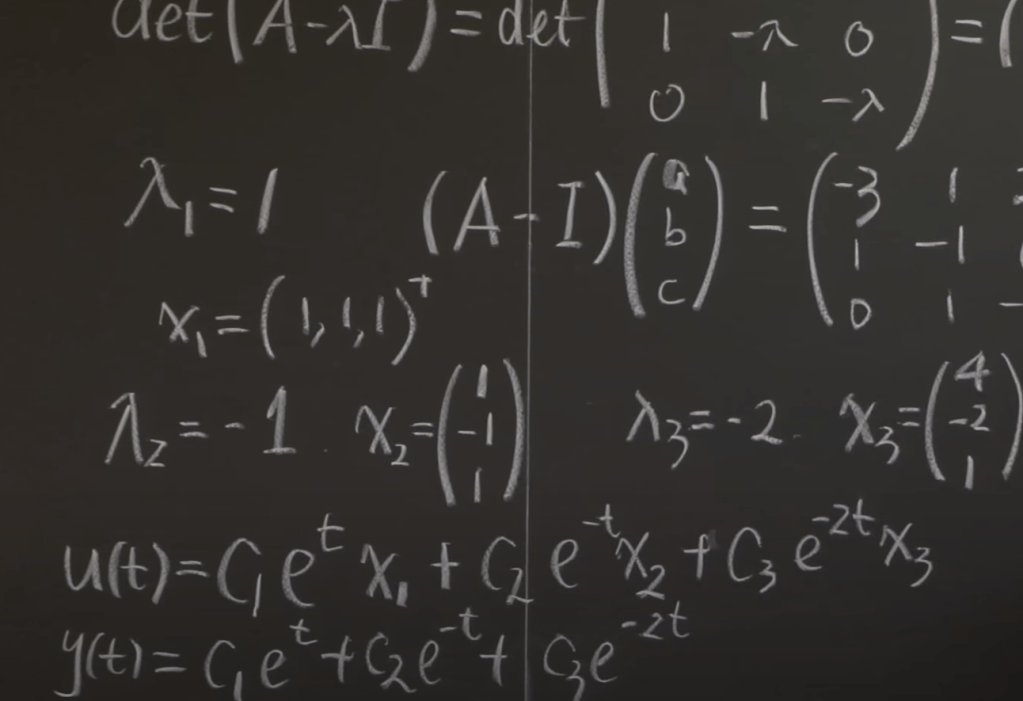 det(A-λI) = det( 1 -λ 0 ) = (
0 1 -λ
λ₁ = 1 (A-I)(a b c) = (-3 1
1 -1
0 1 -
x₁ = (1,1,1)ᵀ
λ₂ = -1 x₂ = (1 -1 1) λ₃ = -2 x₃ = (4 -2 1)
u(t) = C₁e^t x₁ + C₂e^-t x₂ + C₃e^-2t x₃
y(t) = C₁e^t + C₂e^-t + C₃e^-2t